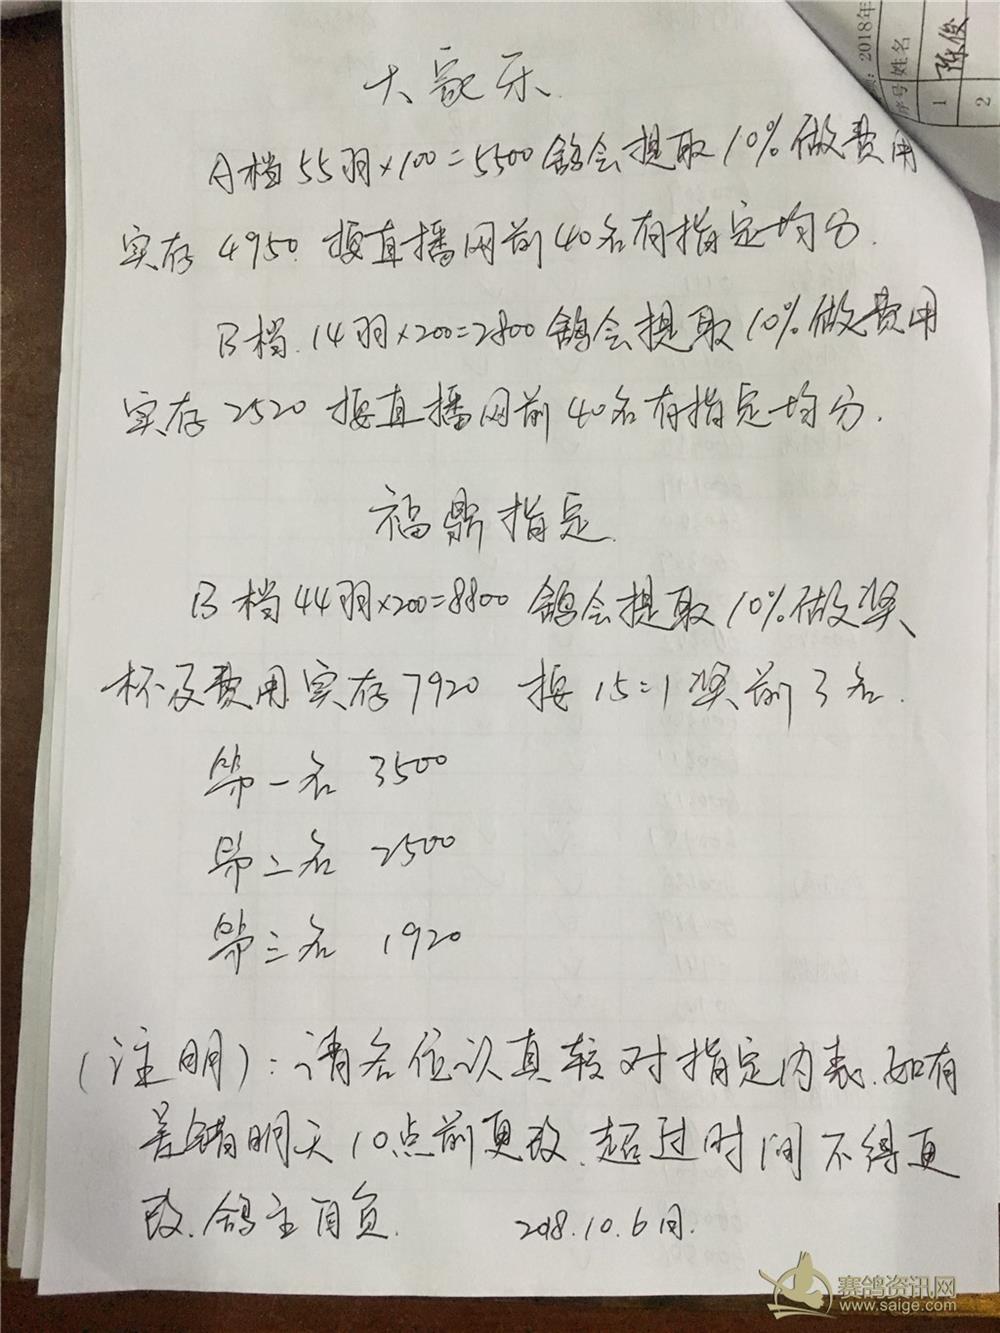 大家乐
A档55羽×100=5500鸽会提取10%做费用
实存4950.按直播网前40名有指定均分.
B档.14羽×200=2800鸽会提取10%做费用
实存2520按直播网前40名有指定均分.
福鼎指定
B档44羽×200=8800鸽会提取10%做奖
杯及费用实存7920 按15=1奖前3名.
第一名 3500
第二名 2500
第三名 1920
(注明):请各位认真较对指定内表.如有
差错明天10点前更改.超过时间不得更
改.鸽主自负.
2018.10.6日.
2018年
序号 姓名
1 陈俊
2
赛鸽资讯网
www.saige.com